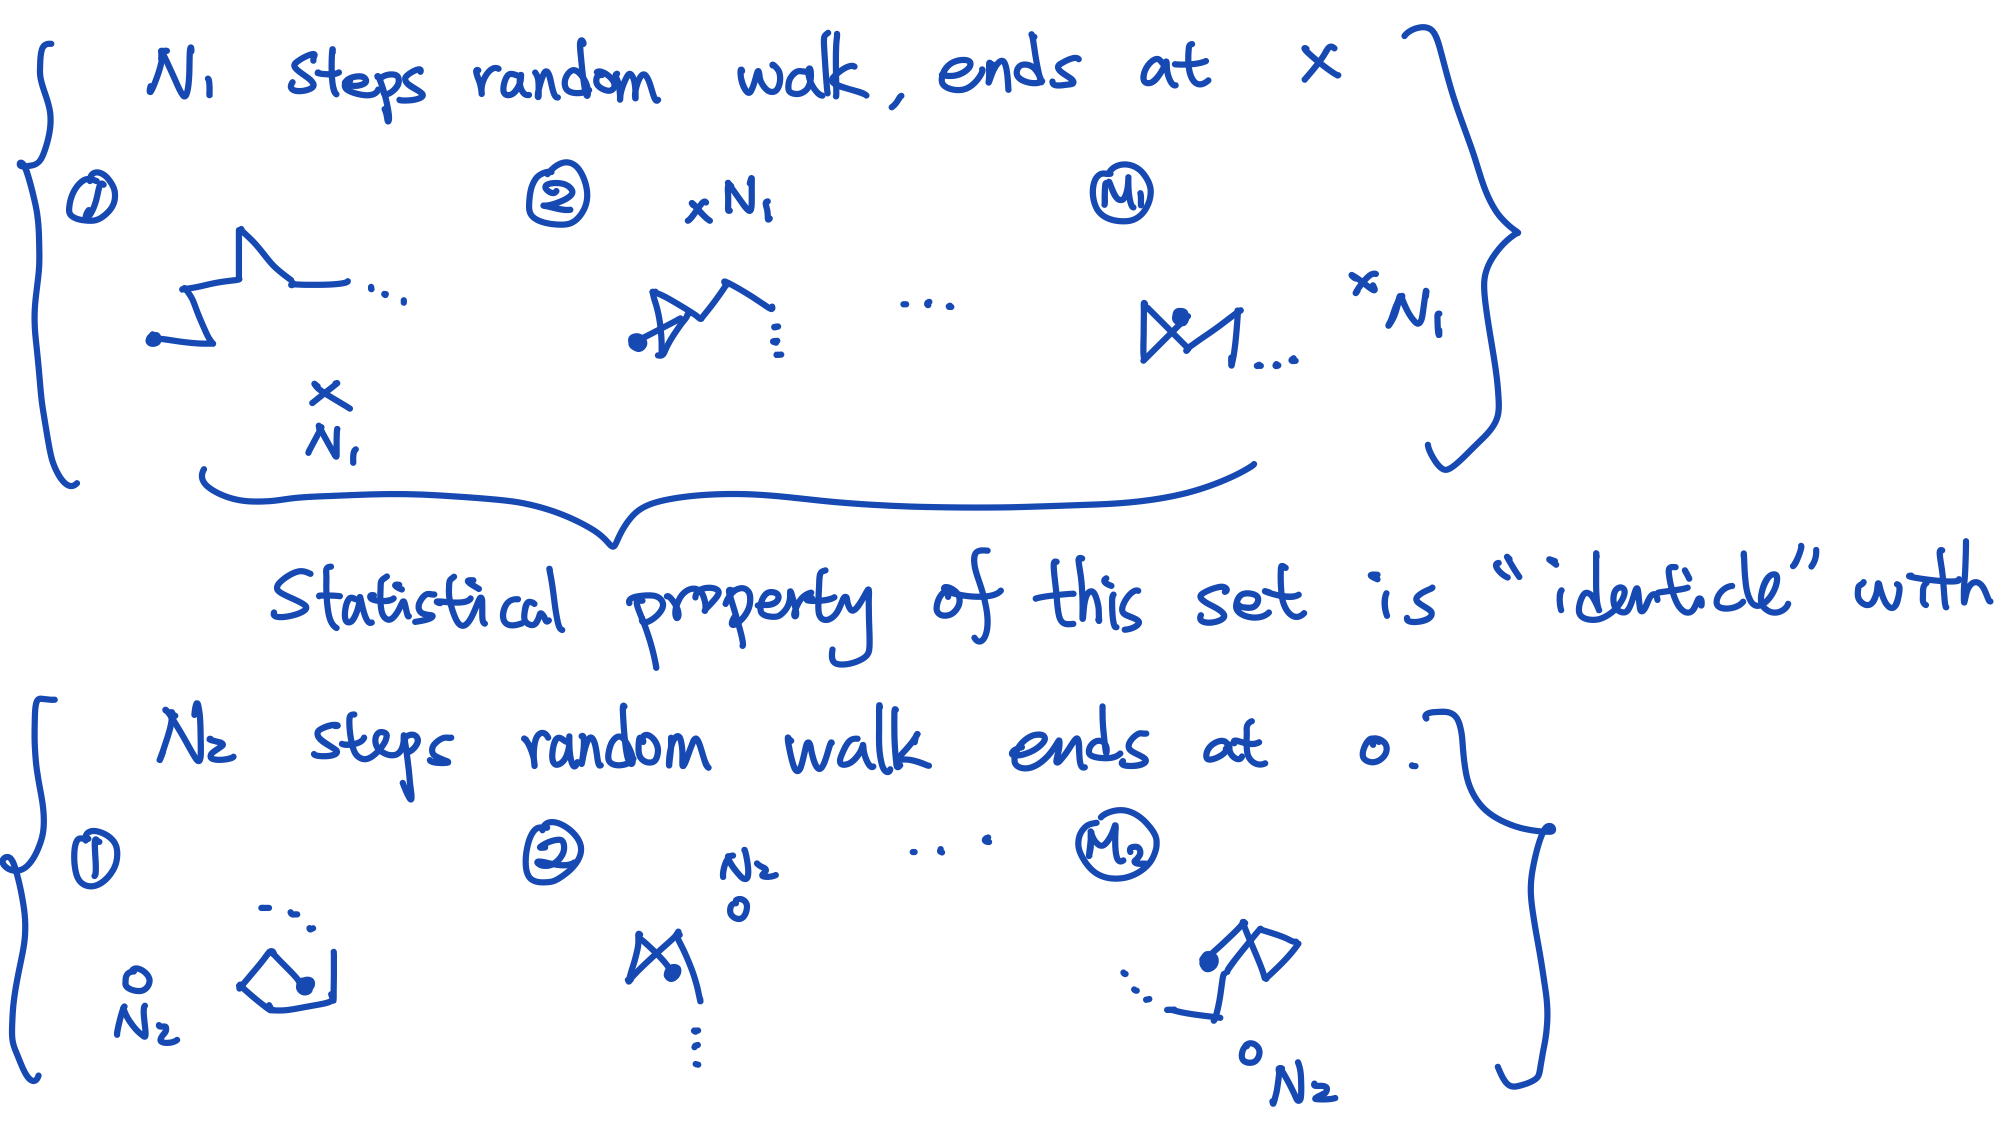 N₁ steps random walk, ends at x
① ② M₁
x N₁
x N₁
x
N₁
Statistical property of this set is "identicle" with
N₂ steps random walk ends at o.
① ② ... M₂
N₂
o
o
N₂
o
N₂